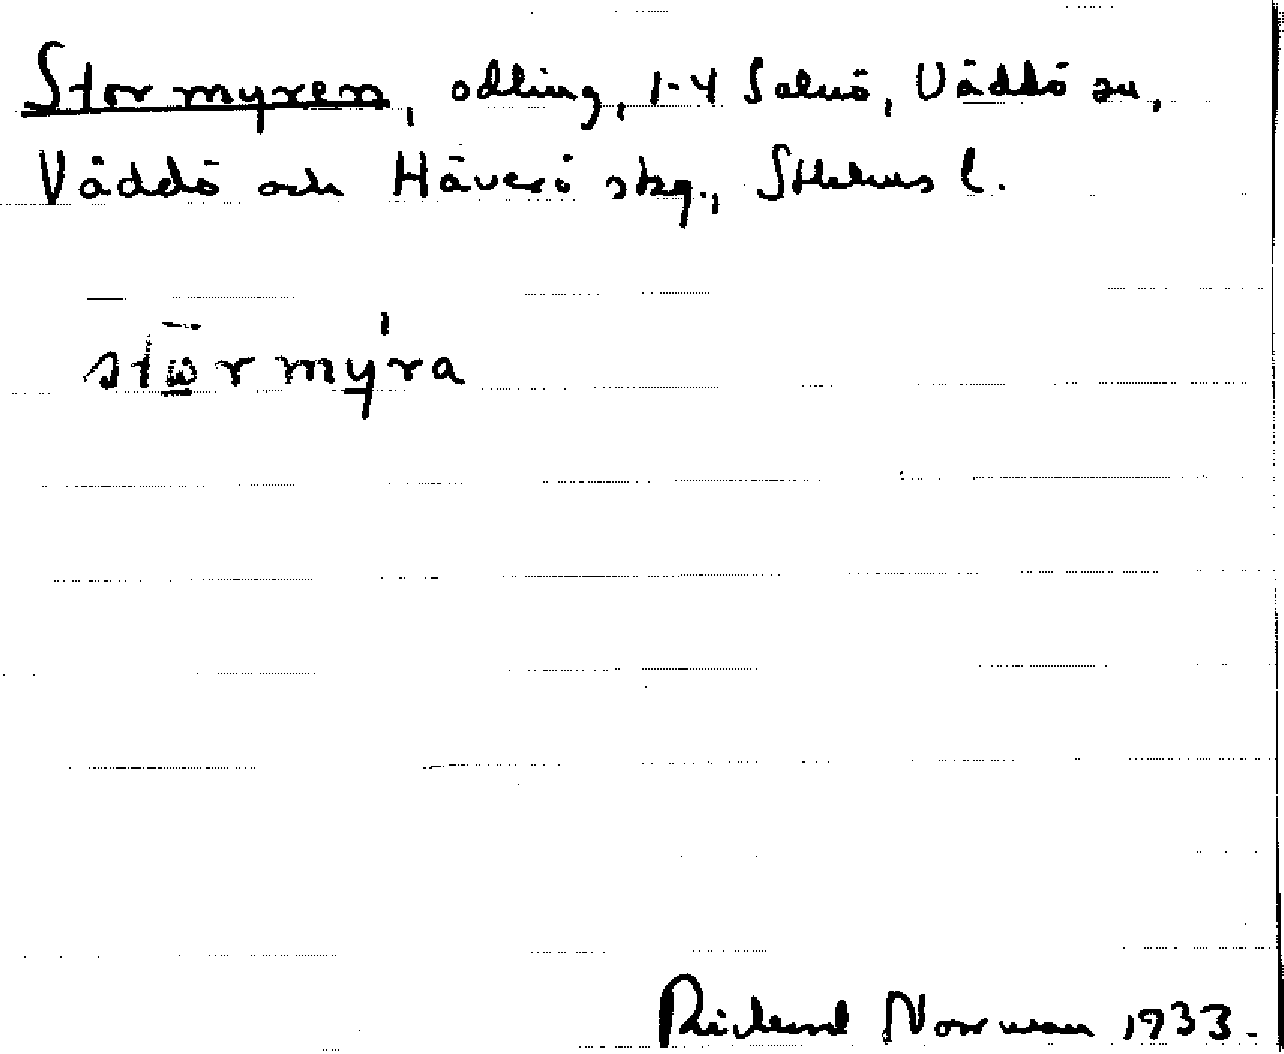 Stormyren, odling, 1-4 Salnö, Väddö sn,
Väddö och Häverö skg., Sthlms l.
stωr myra
Rickard Norrman 1933.